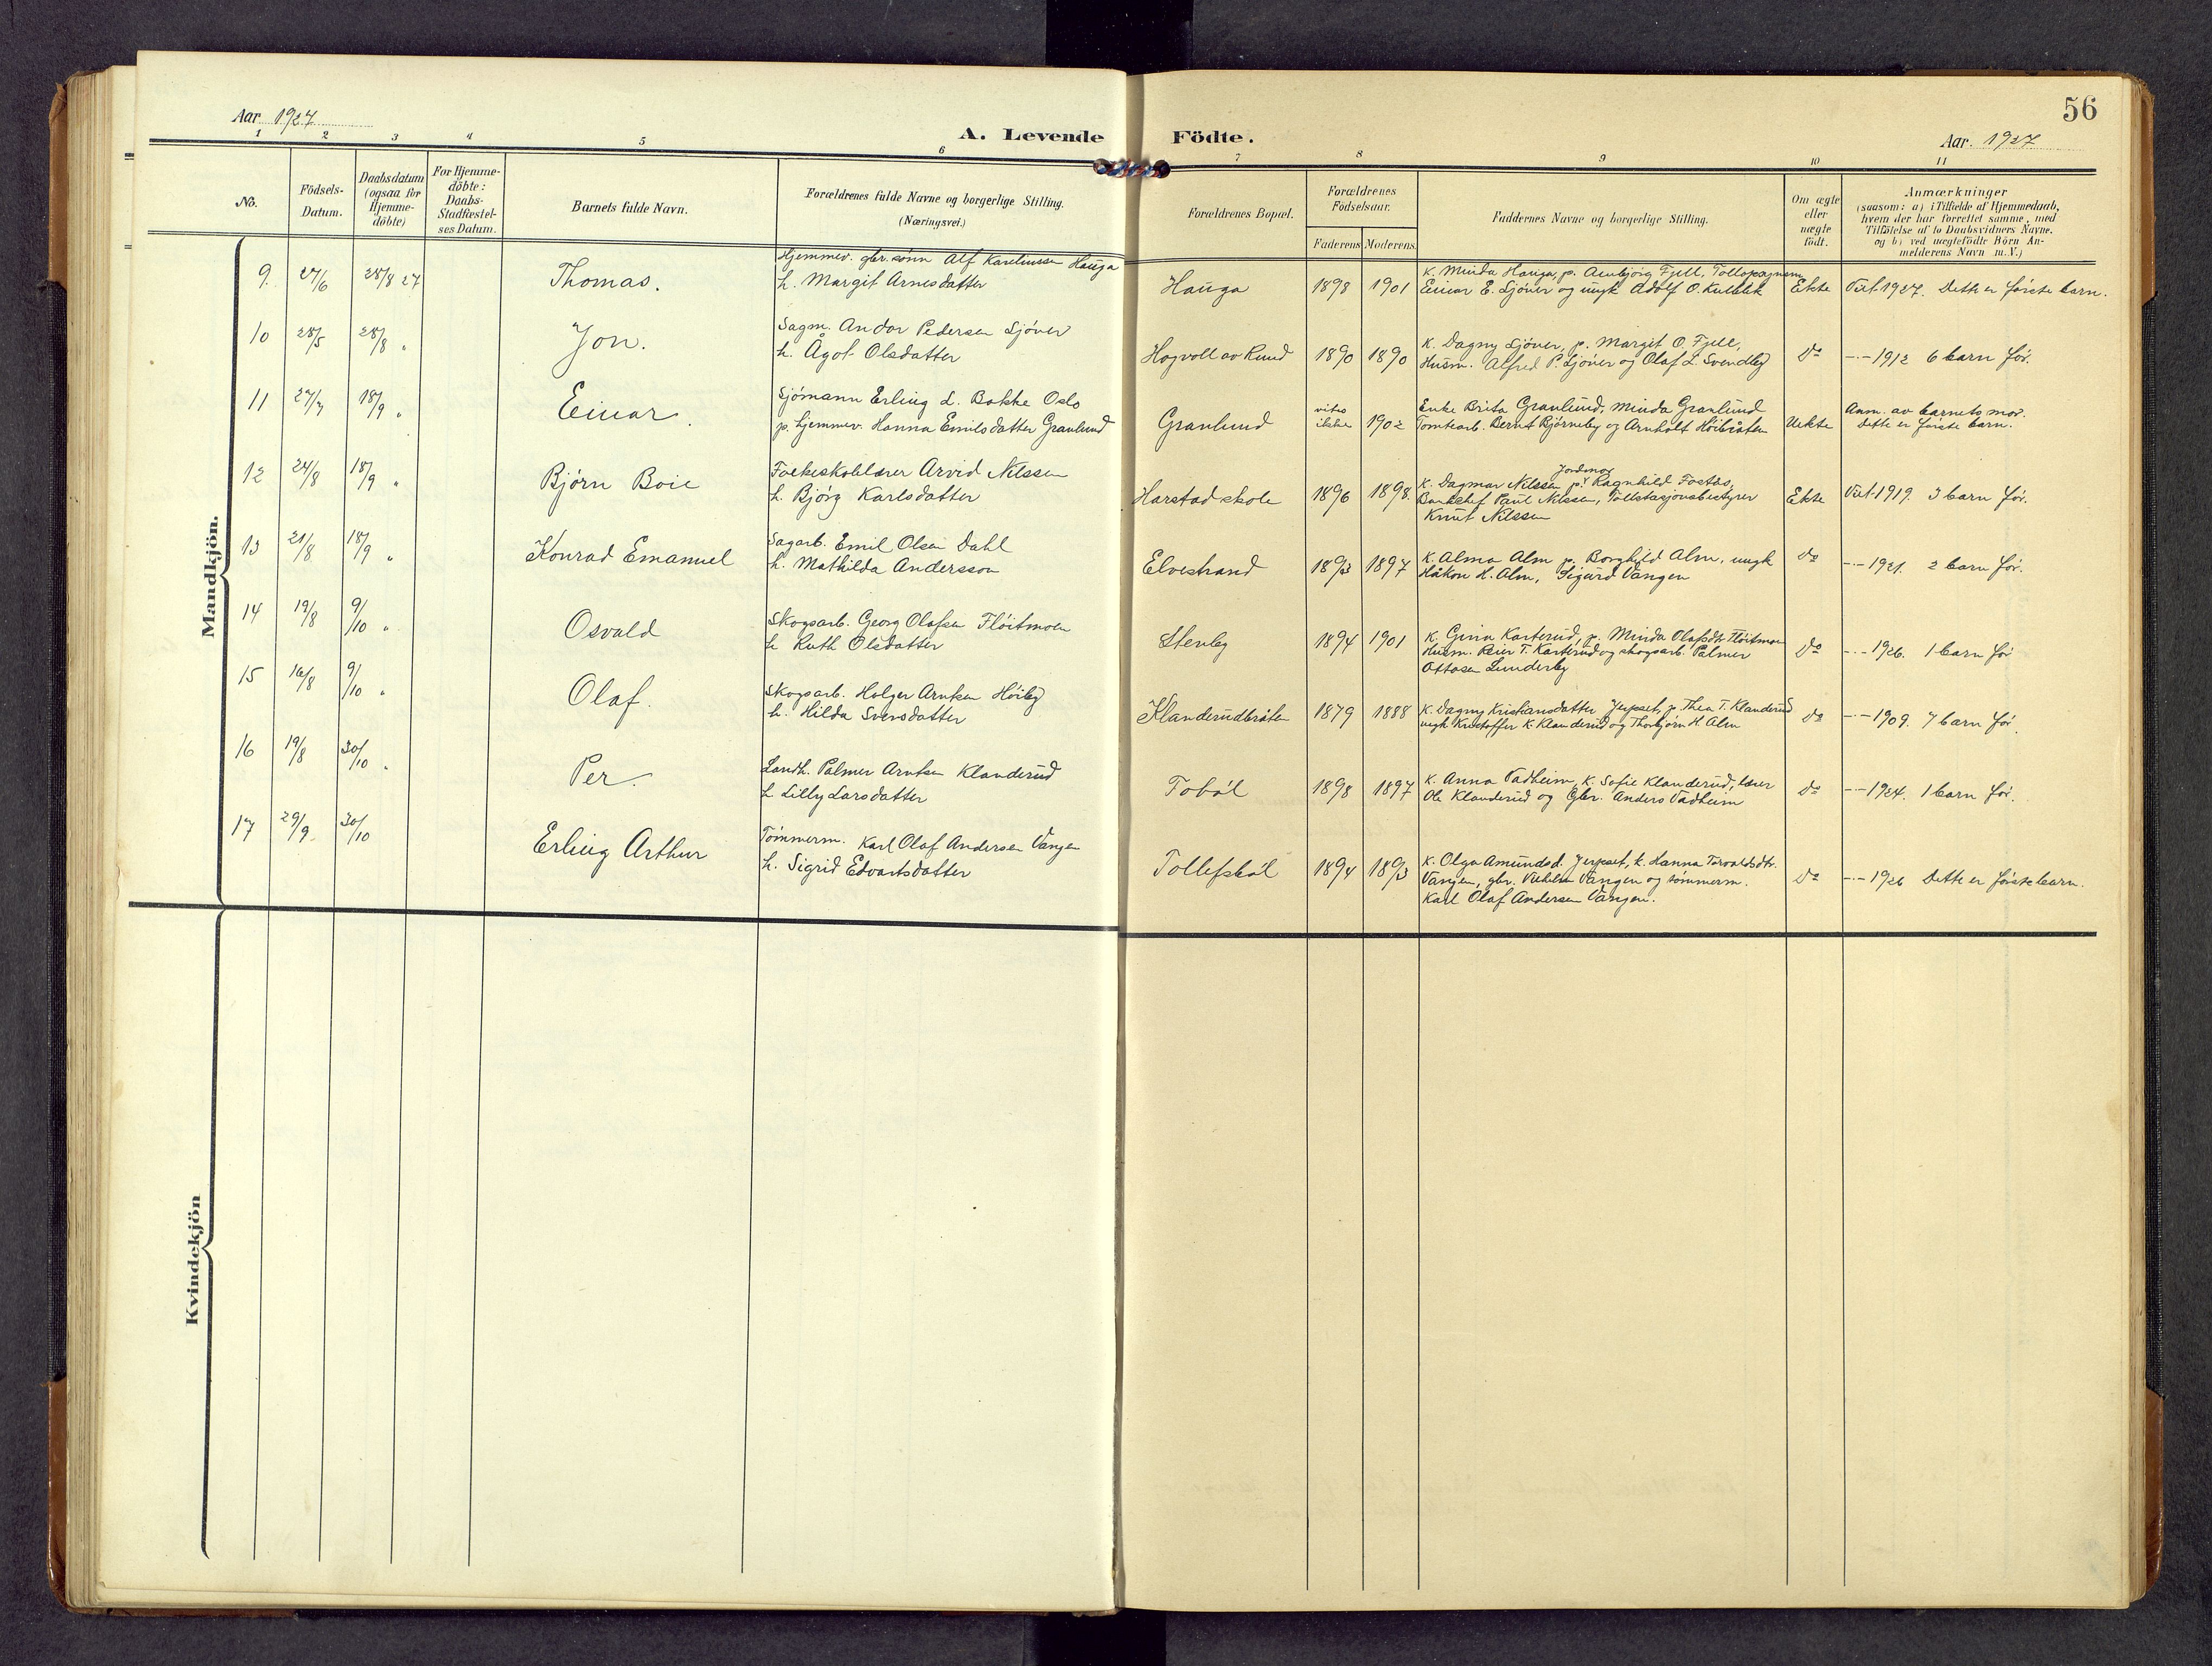 56
Aar 1927
A. Levende Födte.
Aar. 1927
1 2 3 4 5 6 7 8 9 10 11
No.
Födsels-
Datum.
Daabsdatum
(ogsaa for
Hjemme-
döbte)
For Hjemme-
döbte:
Daabs-
Stadfæstel-
ses Datum.
Barnets fulde Navn.
Forældrenes fulde Navne og borgerlige Stilling.
(Næringsvei.)
Forældrenes Bopæl.
Forældrenes
Födselsaar.
Faderens Moderens.
Faddernes Navne og borgerlige Stilling.
Om ægte
eller
uægte
födt.
Anmærkninger
(saasom: a) i Tilfælde af Hjemmedaab,
hvem der har forrettet samme, med
Tilföielse af to Daabsvidners Navne.
og b) ved uægtefödte Börn An-
melderens Navn m.V.)
Mandkjön.
9. 27/6 28/8 27 Thomas.
Hjemmev. gbr. sønn Alf Karelinssen Hauga
h. Margit Arnesdatter
Hauga 1898 1901
K. Minda Hauga, p. Fjell,
Einar E. Sjöner og ungk Adolf O.
Ekte
1927. Dette er første barn.
10 28/5 28/8 " Jon.
Sagm. Andor Pedersen Sjöner
h. Ågot Olsdatter
Hogvoll av Rund 1890 1890
K. Dagny Sjöner, p. Margit O. Fjell,
Husm. Alfred P. Sjöner og Olaf L. Svendby
Do
-"- 1912 6 barn før.
11 27/7 18/9 " Einar.
Sjömann Erling L. Bakke Oslo
p. hjemmev. Hanna Emilsdatter Granlund
Granlund vites ikke 1902
Enke Brita Granlund, Minda Granlund
Tomtearb. Bernt Bjørneby og Arnholt Höibråten
Uekte
Anm. av barnets mor.
Dette er første barn.
12 24/8 18/9 " Bjørn Boie
Folkeskolelærer Arvid Nilssen
h. Bjørg Karlsdatter
Harstad skole 1896 1898.
Jordmor
K. Dagmar Nilssen p. Ragnhild
Banksjef Paul Nilssen, Tollstasjonsbestyrer
Knut Nilssen
Ekte
1919. 3 barn før.
13 21/8 18/9 " Konrad Emanuel
Sagarb. Emil Olsen Dahl
h. Mathilda Andersson
Elvestrand 1893 1897
K. Alma Alm p. Borghild Alm, ungk
Håkon H. Alm, Sigurd Vangen
do
-"- 1921. 2 barn før.
14 19/8 9/10 " Osvald
Skogsarb. Georg Olafsen Flöitmoen
h Ruth Olsdatter
Stenby 1894 1901
K. Gina Karterud, p. Minda Olafsdtr Flöitmoen
Husm. Peier T. Karterud og skogsarb. Palmer
Ottosen Lunderby
Do
-"- 1926. 1 barn før
15 16/8 9/10 " Olaf.
Skogsarb. Holger Arntsen Höiby
h. Hilda Svensdatter
Klanderudbråten 1879 1888
K. Dagny Kristiansdatter Jerpset, p. Thea T. Klanderud
ungk Kristoffer K. Klanderud og Thorbjørn H. Alm
do
-"- 1909. 7 barn før.
16 19/8 30/10 " Per.
Landh. Palmer Arntsen Klanderud
h Lilly Larsdatter
Toból 1898 1897
K. Anna Vadheim, K. Sofie Klanderud, lærer
Ole Klanderud og Gbr. Anders Vadheim
Do
-"- 1924. 1 barn før.
17 29/9. 30/10 Erling Arthur
Tömmerm. Karl Olaf Andersen Vangen
h. Sigrid Edvartsdatter
Tollefsböl 1894 1893
K. Olga Amundsd. Jerpset, k. Hanna Torvaldsdtr.
Vangen, gbr. Vilhelm Vangen og tömmerm.
Karl Olaf Andersen Vangen.
Do
-"- 1926 Dette er første barn.
Kvindekjön